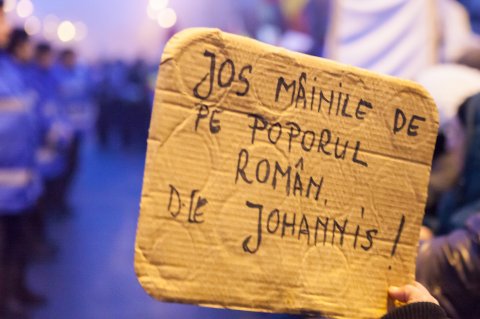 JOS MÂINILE DE
PE POPORUL
ROMÂN,
D.LE JOHANNIS!